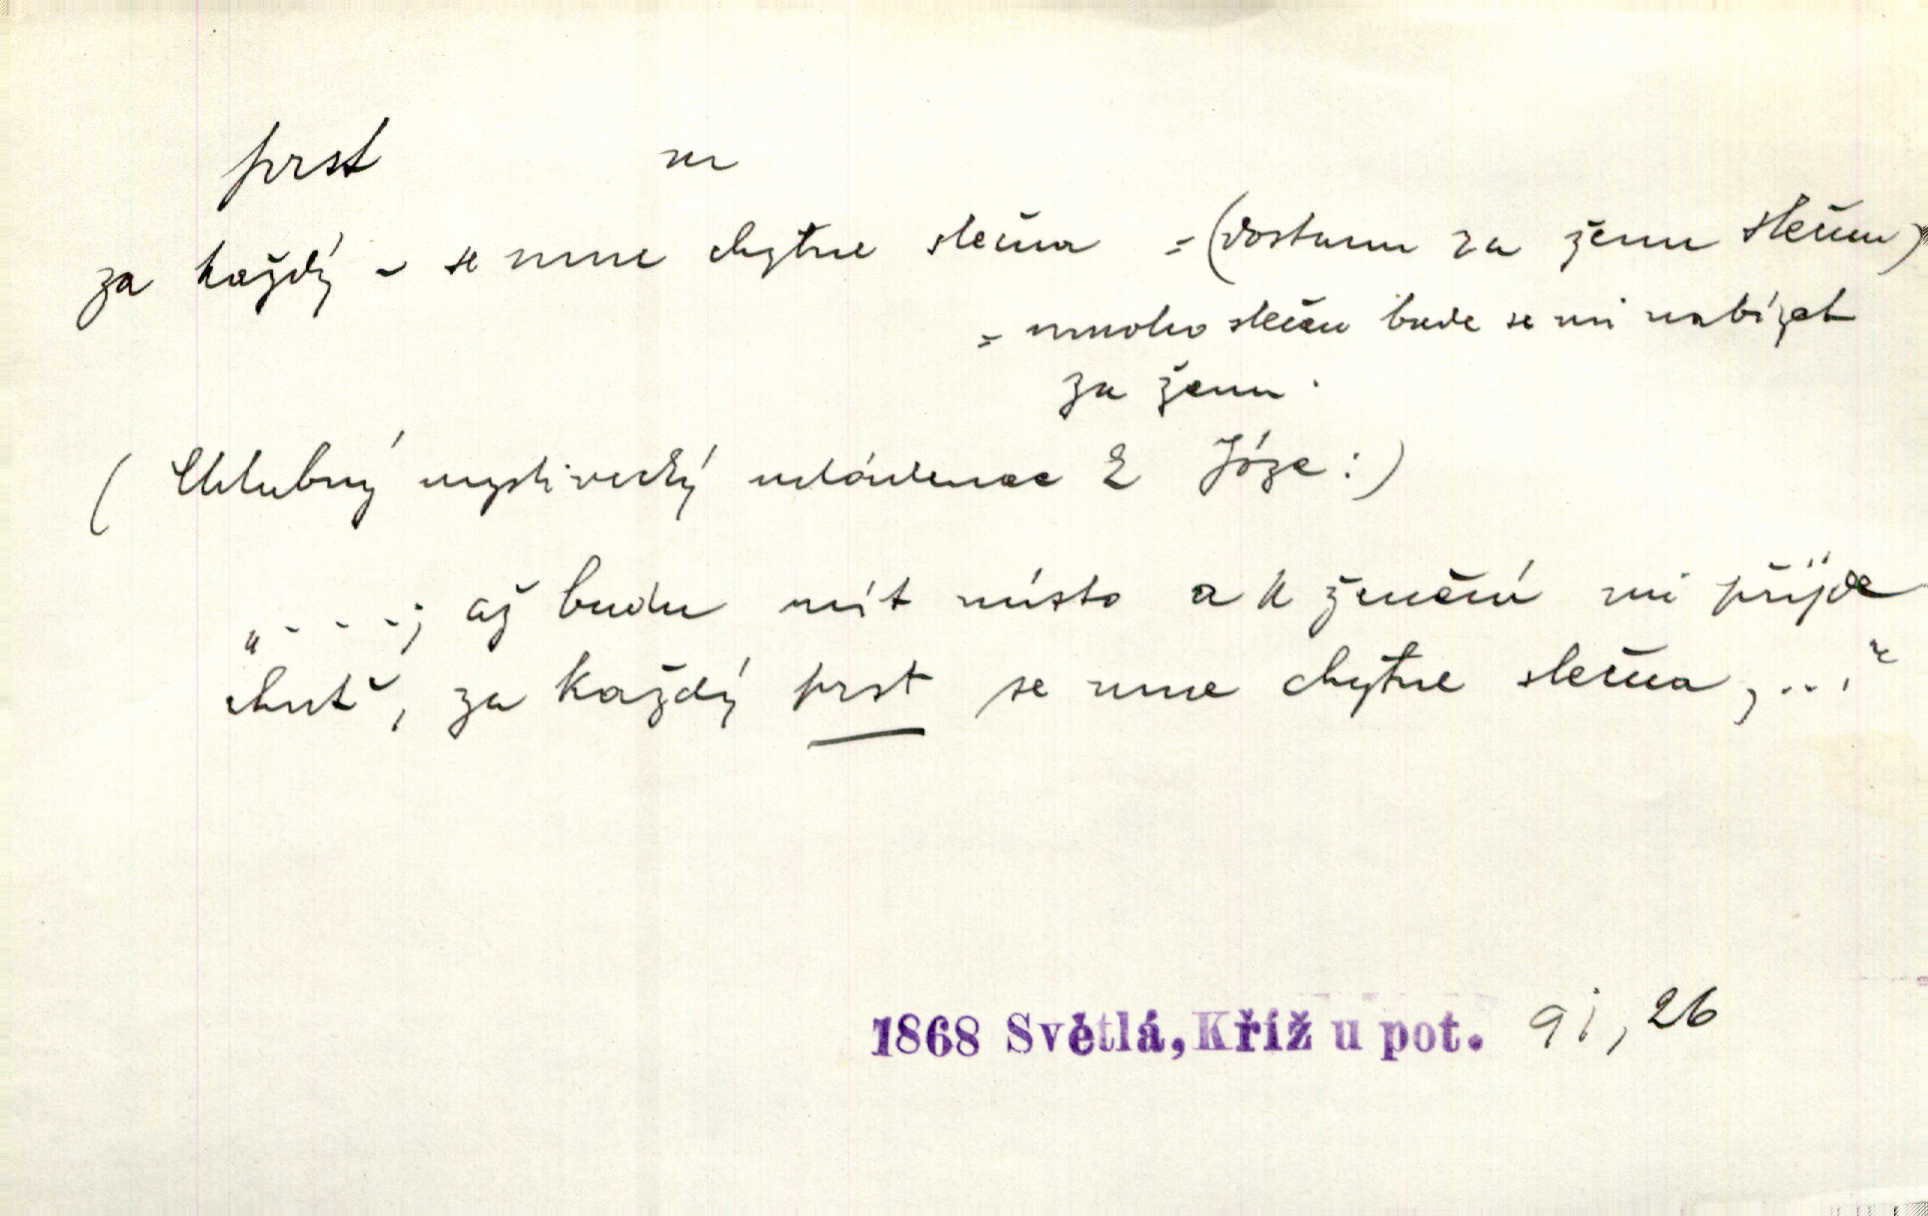 prst m
za každý – se mne chytne slečna = (dostanu za ženu slečnu)
= mnoho slečen bude se mi nabízet
za ženu.
(Chlubný myslivecký mládenec k Józe:)
„ - - - ; až budu mít místo a k ženění mi přijde
chuť, za každý prst se mne chytne slečna, ..."
1868 Světlá, Kříž u pot. 91, 26